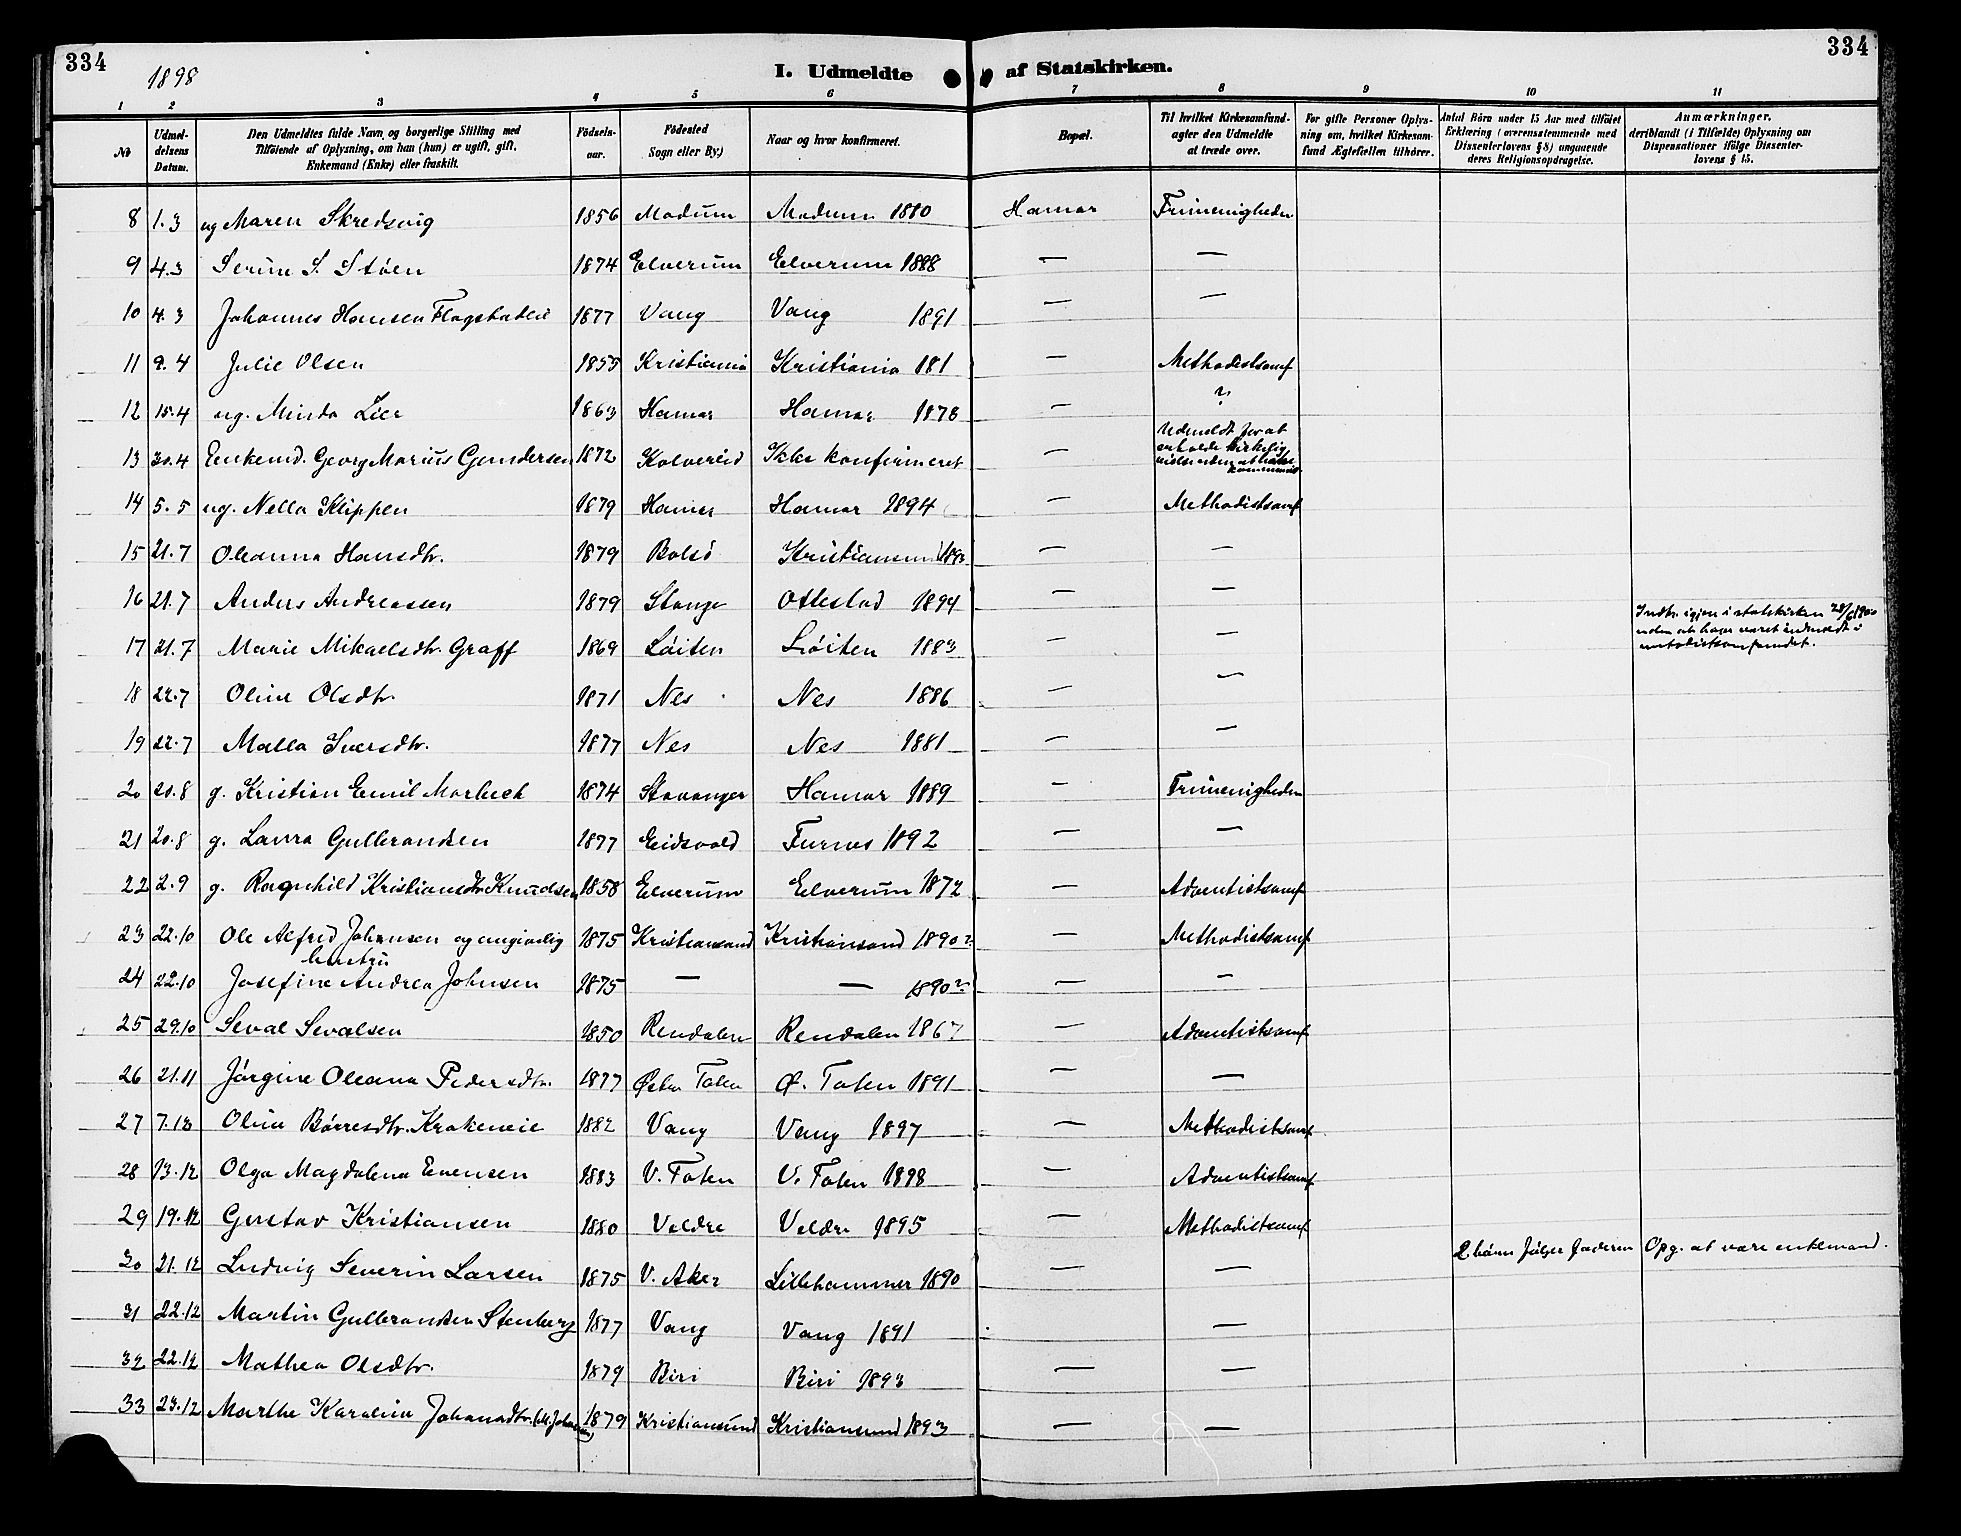 334
334
1898
I. Udmeldte af Statskirken.
1 2 3 4 5 6 7 8 9 10 11
No
Udmel-
delsens
Datum.
Den Udmeldtes fulde Navn og borgerlige Stilling med
Tilføiende af Oplysning, om han (hun) er ugift, gift,
Enkemand (Enke) eller fraskilt.
Fødsels-
aar.
Fødested
Sogn eller By.)
Naar og hvor konfirmeret.
Bopæl.
Til hvilket Kirkesamfund-
agter den Udmeldte
at træde over.
For gifte Personer Oplys-
ning om, hvilket Kirkesam-
fund Ægtefællen tilhører.
Antal Børn under 15 Aar med tilføiet
Erklæring (overensstemmende med
Dissenterlovens § 8) angaaende
deres Religionsopdragelse.
Anmærkninger,
deriblandt (i Tilfælde) Oplysning om
Dispensationer ifølge Dissenter-
lovens § 15.
8 1.3 ug Maren Skredsvig 1856 Modum Modum 1880 Hamar Frimenigheden
9 4.3 Serine S. Støen 1874 Elverum Elverum 1888 — —
10 4.3 Johannes Hansen Flagstadeie 1877 Vang Vang 1891 — —
11 9.4 Julie Olsen 1855 Kristiania Kristiania 181 — Methodistsamf
12 15.4 ug. Minda Lier 1863 Hamar Hamar 1878 — ?
13 30.4 Enkemd. Georg Marius Gundersen 1872 Kolvereid Ikke konfirmeret — Udmeldt for at
erholde kirkelig
14 5.5 ug. Nella Klippen 1879 Hamar Hamar 1894 — Methodistsamf
15 21.7 Oleanna Hansdtr. 1879 Bolsø Kristiansund 1893 — —
16 21.7 Anders Andreassen 1879 Stange Ottestad 1894 — —
17 21.7 Marie Mikaelsdtr. Graff 1869 Løiten Løiten 1883 — — Indtr. igjen i statskirken 28/6 1900
uden at have været indmeldt i
metodistsamfundet.
18 22.7 Oline Olsdtr. 1871 Nes Nes 1886 — —
19 22.7 Malla Iversdtr. 1877 Nes Nes 1881 — —
20 20.8 g. Kristian Emil Morbech 1874 Stavanger Hamar 1889 — Frimenigheden
21 20.8 g. Laura Gulbrandsen 1877 Eidsvold Furnes 1892 — —
22 2.9 g. Ragnhild Kristiansdtr Knudsen 1858 Elverum Elverum 1872 — Adventistsamf
23 22.10 Ole Alfred Johnsen og angivelig
hustru 1875 Kristiansand Kristiansand 1890? — Methodistsamf
24 22.10 Josefine Andrea Johnsen 1875 — — 1890? — —
25 29.10 Seval Sevalsen 1850 Rendalen Rendalen 1867 — Adventistsamf
26 21.11 Jørgine Oleana Pedersdtr. 1877 Østre Toten Ø. Toten 1891 — —
27 7.12 Oline Børresdtr. Krakeneie 1882 Vang Vang 1897 — Methodistsamf
28 13.12 Olga Magdalena Evensen 1883 V. Toten V. Toten 1898 — Adventistsamf
29 19.12 Gustav Kristiansen 1880 Veldre Veldre 1895 — Methodistsamf
30 21.12 Ludvig Severin Larsen 1875 V. Aker Lillehammer 1890 — — 2 børn følger faderen Opg. at være enkemand.
31 22.12 Martin Gulbrandsen Stenberg 1877 Vang Vang 1891 —
32 22.12 Mathea Olsdtr. 1879 Biri Biri 1893 — —
33 23.12 Marthe Karoline Johansdtr. 1879 Kristiansund Kristiansund 1893 — —